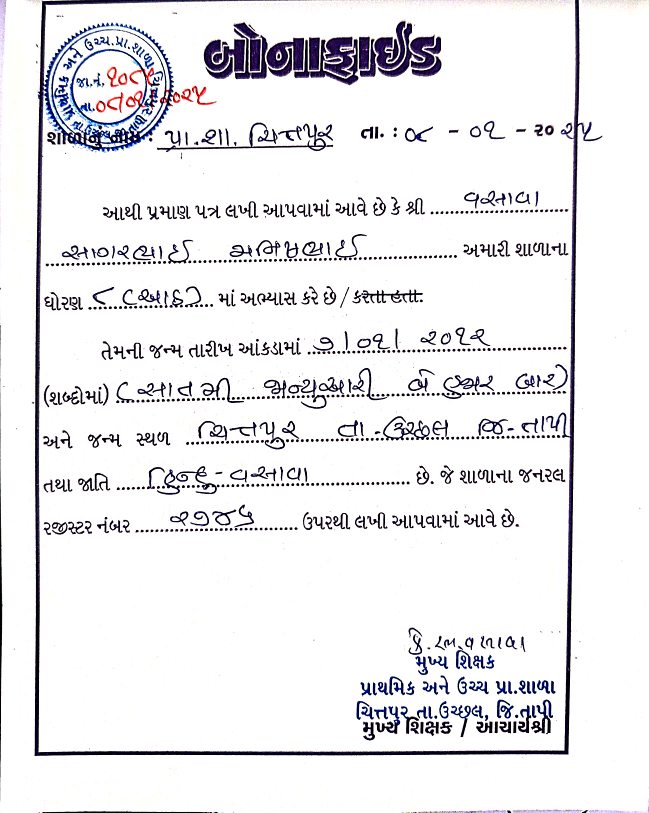 બોનાફાઈડ
પ્રાથમિક અને ઉચ્ચ.પ્રા.શાળા
જા.નં.
તા. ૦૮/૦૧/૨૦૨૫
શાળાનું નામ : પ્રા. શા. ચિત્તપુર તા. : ૦૮ - ૦૧ - ૨૦૨૫
આથી પ્રમાણ પત્ર લખી આપવામાં આવે છે કે શ્રી વસાવા
સાગરભાઈ અમારી શાળાના
ધોરણ ૮ (આઠ) માં અભ્યાસ કરે છે / કરતા હતા.
તેમની જન્મ તારીખ આંકડામાં ૭/૦૧/૨૦૧૨
(શબ્દોમાં) (સાતમી જાન્યુઆરી બે હજાર બાર)
અને જન્મ સ્થળ ચિત્તપુર તા-ઉચ્છલ જિ-તાપી
તથા જાતિ હિન્દુ-વસાવા છે. જે શાળાના જનરલ
રજીસ્ટર નંબર ૨૭૪૫ ઉપરથી લખી આપવામાં આવે છે.
મુખ્ય શિક્ષક
પ્રાથમિક અને ઉચ્ચ પ્રા.શાળા
ચિત્તપુર તા.ઉચ્છલ, જિ.તાપી
મુખ્ય શિક્ષક / આચાર્યશ્રી